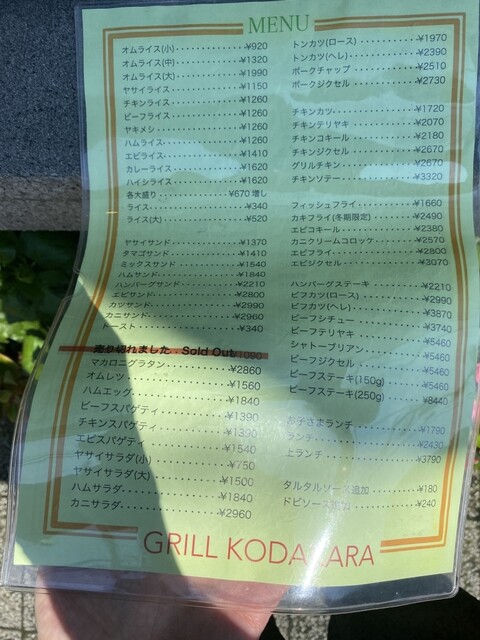 MENU
オムライス(小)・・・・・・・・・・・¥920
オムライス(中)・・・・・・・・・・・¥1320
オムライス(大)・・・・・・・・・・・¥1990
ヤサイライス・・・・・・・・・・・¥1150
チキンライス・・・・・・・・・・・¥1260
ビーフライス・・・・・・・・・・・¥1260
ヤキメシ・・・・・・・・・・・¥1260
ハムライス・・・・・・・・・・・¥1260
エビライス・・・・・・・・・・・¥1410
カレーライス・・・・・・・・・・・¥1620
ハイシライス・・・・・・・・・・・¥1620
各大盛り・・・・・・・・・・・¥670増し
ライス・・・・・・・・・・・¥340
ライス(大)・・・・・・・・・・・¥520
ヤサイサンド・・・・・・・・・・・¥1370
タマゴサンド・・・・・・・・・・・¥1410
ミックスサンド・・・・・・・・・・・¥1540
ハムサンド・・・・・・・・・・・¥1840
ハンバーグサンド・・・・・・・・・・・¥2210
エビサンド・・・・・・・・・・・¥2800
カツサンド・・・・・・・・・・・¥2990
カニサンド・・・・・・・・・・・¥2960
トースト・・・・・・・・・・・¥340
売り切れました・Sold Out
マカロニグラタン・・・・・・・・・・・¥2860
オムレツ・・・・・・・・・・・¥1560
ハムエッグ・・・・・・・・・・・¥1840
ビーフスパゲティ・・・・・・・・・・・¥1390
チキンスパゲティ・・・・・・・・・・・¥1390
エビスパゲティ・・・・・・・・・・・¥1540
ヤサイサラダ(小)・・・・・・・・・・・¥750
ヤサイサラダ(大)・・・・・・・・・・・¥1500
ハムサラダ・・・・・・・・・・・¥1840
カニサラダ・・・・・・・・・・・¥2960
トンカツ(ロース)・・・・・・・・・・・¥1970
トンカツ(ヘレ)・・・・・・・・・・・¥2390
ポークチャップ・・・・・・・・・・・¥2510
ポークジクセル・・・・・・・・・・・¥2730
チキンカツ・・・・・・・・・・・¥1720
チキンテリヤキ・・・・・・・・・・・¥2070
チキンコキール・・・・・・・・・・・¥2180
チキンジクセル・・・・・・・・・・・¥2670
グリルチキン・・・・・・・・・・・¥2670
チキンソテー・・・・・・・・・・・¥3320
フィッシュフライ・・・・・・・・・・・¥1660
カキフライ(冬期限定)・・・・・・・・・・・¥2490
エビコキール・・・・・・・・・・・¥2380
カニクリームコロッケ・・・・・・・・・・・¥2570
エビフライ・・・・・・・・・・・¥2800
エビジクセル・・・・・・・・・・・¥3070
ハンバーグステーキ・・・・・・・・・・・¥2210
ビフカツ(ロース)・・・・・・・・・・・¥2990
ビフカツ(ヘレ)・・・・・・・・・・・¥3870
ビーフシチュー・・・・・・・・・・・¥3740
ビーフテリヤキ・・・・・・・・・・・¥5460
シャトーブリアン・・・・・・・・・・・¥5460
ビーフジクセル・・・・・・・・・・・¥5460
ビーフステーキ(150g)・・・・・・・・・・・¥5460
ビーフステーキ(250g)・・・・・・・・・・・¥8440
お子さまランチ・・・・・・・・・・・¥1790
ランチ・・・・・・・・・・・¥2430
上ランチ・・・・・・・・・・・¥3790
タルタルソース追加・・・・・・・・・・・¥180
ドビソース追加・・・・・・・・・・・¥240
GRILL KODAKARA